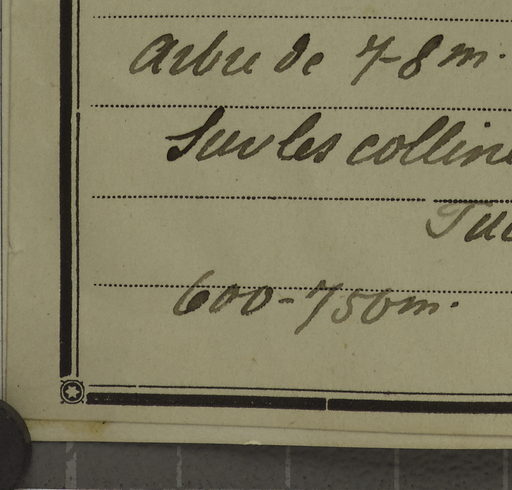 Arbre de 7-8 m.
Sur les colline
600-750 m.